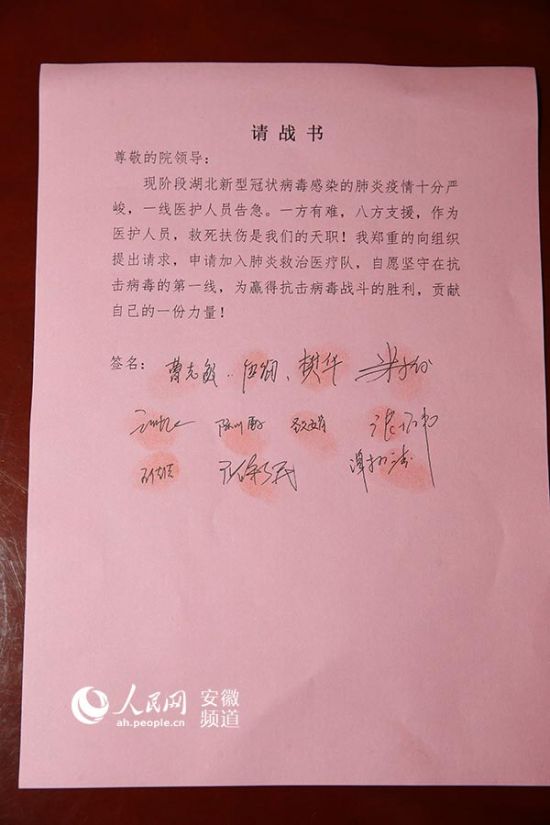 请战书
尊敬的院领导：
现阶段湖北新型冠状病毒感染的肺炎疫情十分严
峻，一线医护人员告急。一方有难，八方支援，作为
医护人员，救死扶伤是我们的天职！我郑重的向组织
提出请求，申请加入肺炎救治医疗队，自愿坚守在抗
击病毒的第一线，为赢得抗击病毒战斗的胜利，贡献
自己的一份力量！
签名：曹志敏 樊华
人民网 安徽
ah.people.cn 频道